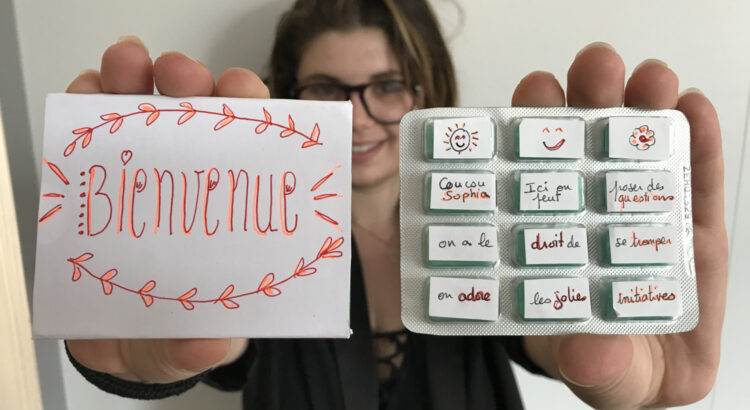 Bienvenue
Coucou Sophia
Ici on peut
poser des questions
on a le
droit de
se tromper
on adore
les jolies
initiatives